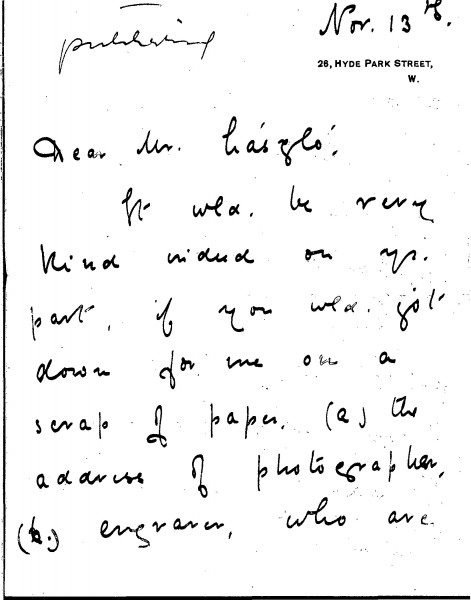 publishing
Nov. 13th.
26, HYDE PARK STREET,
W.
Dear Mr. László,
It wld. be very
kind indeed on yr.
part, if you wld. jot
down for me on a
scrap of paper, (a) the
address of photographer,
(b.) engraver, who are